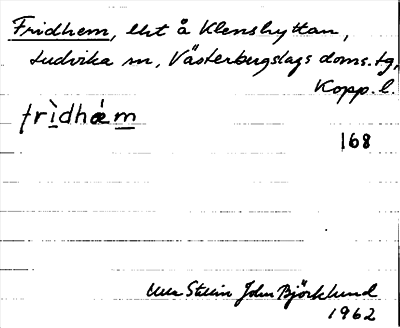 Fridhem, lht å Klenshyttan,
Ludvika sn, Västerbergslags doms. tg,
Kopp. l.
frìdhæ̀m
168
John Björklund
1962